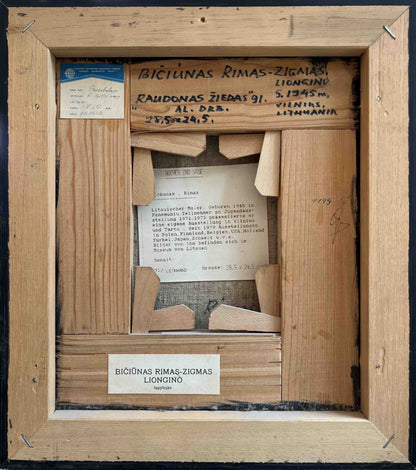 BIČIŪNAS RIMAS-ZIGMAS,
LIONGINO
G. 1945 m,
"RAUDONAS ŽIEDAS" 91.
AL. DRB.
VILNIUS,
LITHUANIA
28,5 x 24,5,
BÜCHER UND VASE
Rimas
Litauischer Maler. Geboren 1945 in
Panemuniu. Teilnehmer an Jugendaus-
stellung 1972. 1975 präsentierte er
eine eigene Ausstellung in Vilnius
und Tartu. Seit 1979 Ausstellungen
in Polen, Finnland, Belgien, USA, Holland
Türkei, Japan, Schweiz u.v.a.
Bilder von ihm befinden sich im
Museum von Litauen
Gemalt:
ÖL/ LEINWAND Grösse: 28.5 x 24.5
BIČIŪNAS RIMAS-ZIGMAS
LIONGINO
tapytojas